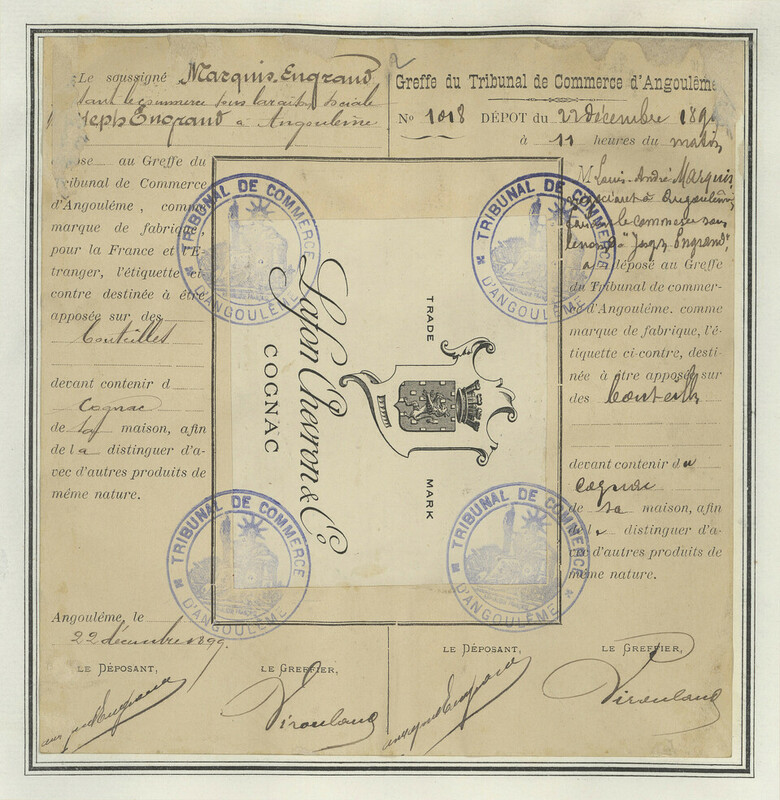 Le soussigné Marquis-Engrand
faisant le commerce sous la raison sociale
Joseph Engrand à Angoulême
au Greffe du
Tribunal de Commerce
d'Angoulême, comme
marque de fabrique,
pour la France et l'É-
tranger, l'étiquette ci-
contre destinée à être
apposée sur des
bouteilles
devant contenir d
Cognac
de sa maison, afin
de la distinguer d'a-
vec d'autres produits de
même nature.
Angoulême, le
22 décembre 1899.
LE DÉPOSANT,
LE GREFFIER,
TRADE
MARK
Lafon Chevron & Co.
COGNAC
TRIBUNAL DE COMMERCE
D'ANGOULÊME
TRIBUNAL DE COMMERCE
D'ANGOULÊME
TRIBUNAL DE COMMERCE
D'ANGOULÊME
TRIBUNAL DE COMMERCE
D'ANGOULÊME
Greffe du Tribunal de Commerce d'Angoulême
No 1018 DÉPOT du 22 décembre 189
à 11 heures du matin,
M. Louis-André Marquis,
négociant à Angoulême,
le commerce sous
le nom de "Joseph Engrand"
a déposé au Greffe
du Tribunal de commer-
ce d'Angoulême. comme
marque de fabrique, l'é-
tiquette ci-contre, desti-
née à être apposée sur
des bouteilles
devant contenir du
cognac
de sa maison, afin
de la distinguer d'a-
vec d'autres produits de
même nature.
LE DÉPOSANT,
LE GREFFIER,